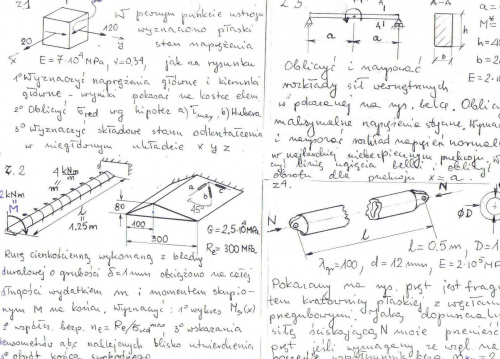 z1
W pewnym punkcie ustroju
wyznaczono płaski
stan naprężenia
120
20
y
E = 7·10⁴ MPa, ν=0.34, jak na rysunku
1° Wyznaczyć naprężenia główne i kierunki
główne - wyniki pokazać na kostce elem.
2° Obliczyć σred wg hipotez a) τmax, b) Hubera
3° Wyznaczyć składowe stanu odkształcenia
w niegłównym układzie x y z
z. 2
4 kNm/m
2 kNm
M
m
l
1.25m
80
100
300
a
b
c
45°
G = 2,5·10⁴ MPa
Re = 300 MPa
Rurę cienkościenną wykonaną z blachy
duralowej o grubości δ=1mm obciążono na całej
długości wydatkiem m i momentem skupio-
nym M na końcu. Wyznaczyć: 1° wykres Ms(x)
2° współcz. bezp. ne = Re/σred max 3° wskazania
tensometrów abc naklejonych blisko utwierdzenia
4° obrót końca swobodnego
z 3.
A
A1
A-A
a
a
b
a =
M =
h = 2
b = 2
E = 2·1
Obliczyć i narysować
rozkłady sił wewnętrznych
w pokazanej na rys. belce. Oblicz
maksymalne naprężenia styczne. Wyznacz
i narysować rozkład naprężeń normaln
w najbardziej niebezpiecznym przekroju
linię ugięcia belki i obliczyć
obrotu dla przekroju x = a
z4.
N
N
l
ØD
l = 0.5m, D = 1
λgr = 100, d = 12 mm, E = 2·10⁵ MPa
Pokazany na rys. pręt jest frag
tem kratownicy płaskiej z węzłami
przegubowymi. Jaką dopuszczaln
siłę ściskającą N może przenieść
pręt jeśli wymagany ze wzgl. na